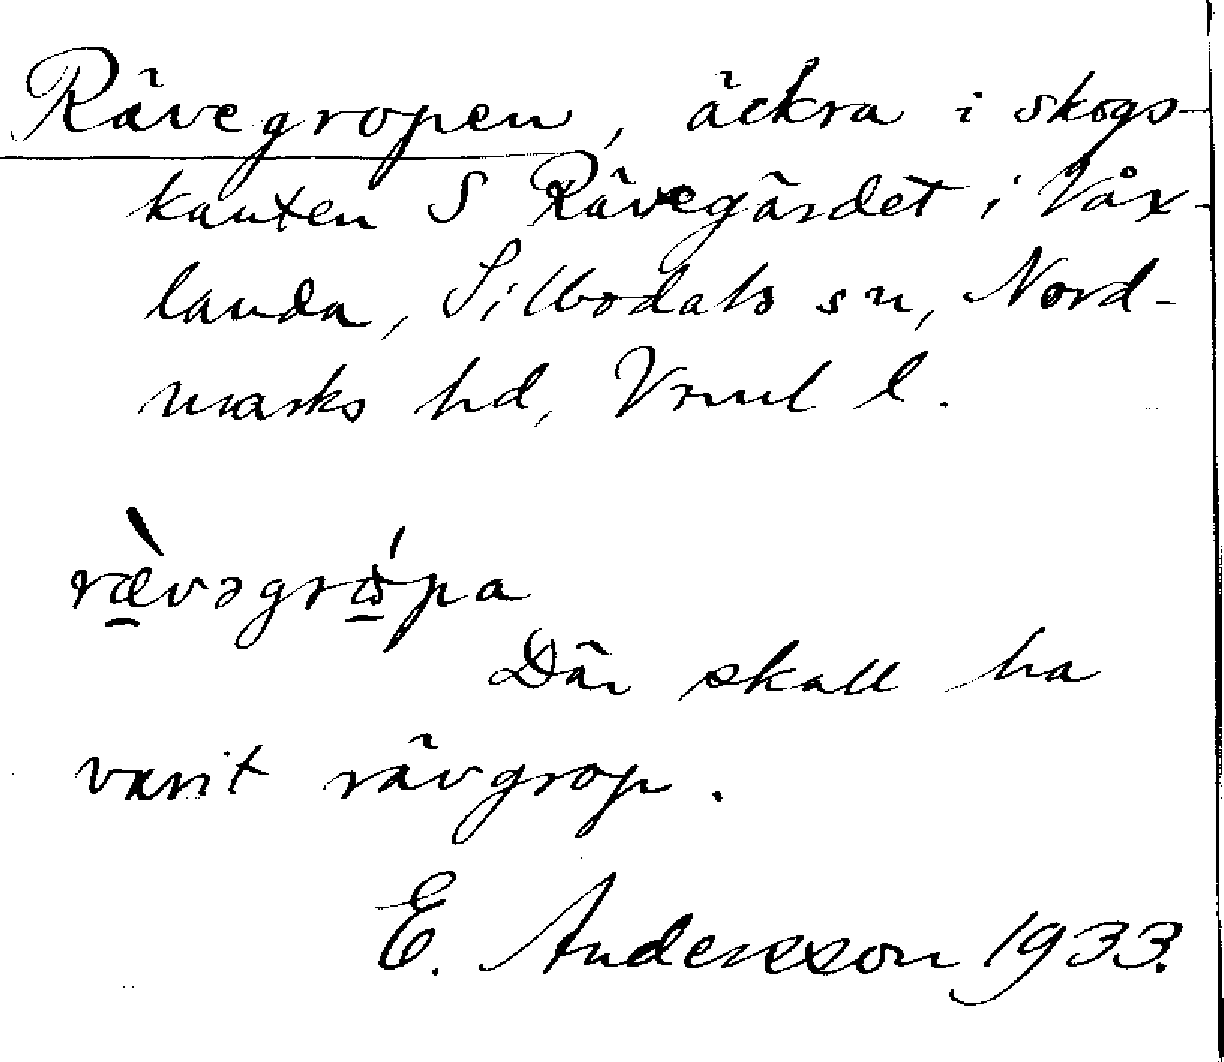 Rävegropen, äckra i skogs-
kanten S Rävegärdet i Våx-
landa, Silbodals sn, Nord-
marks hd, Vrml l.
ræ̀vəgrɷ́pa
Där skall ha
varit rävgrop.
E. Andersson 1933.